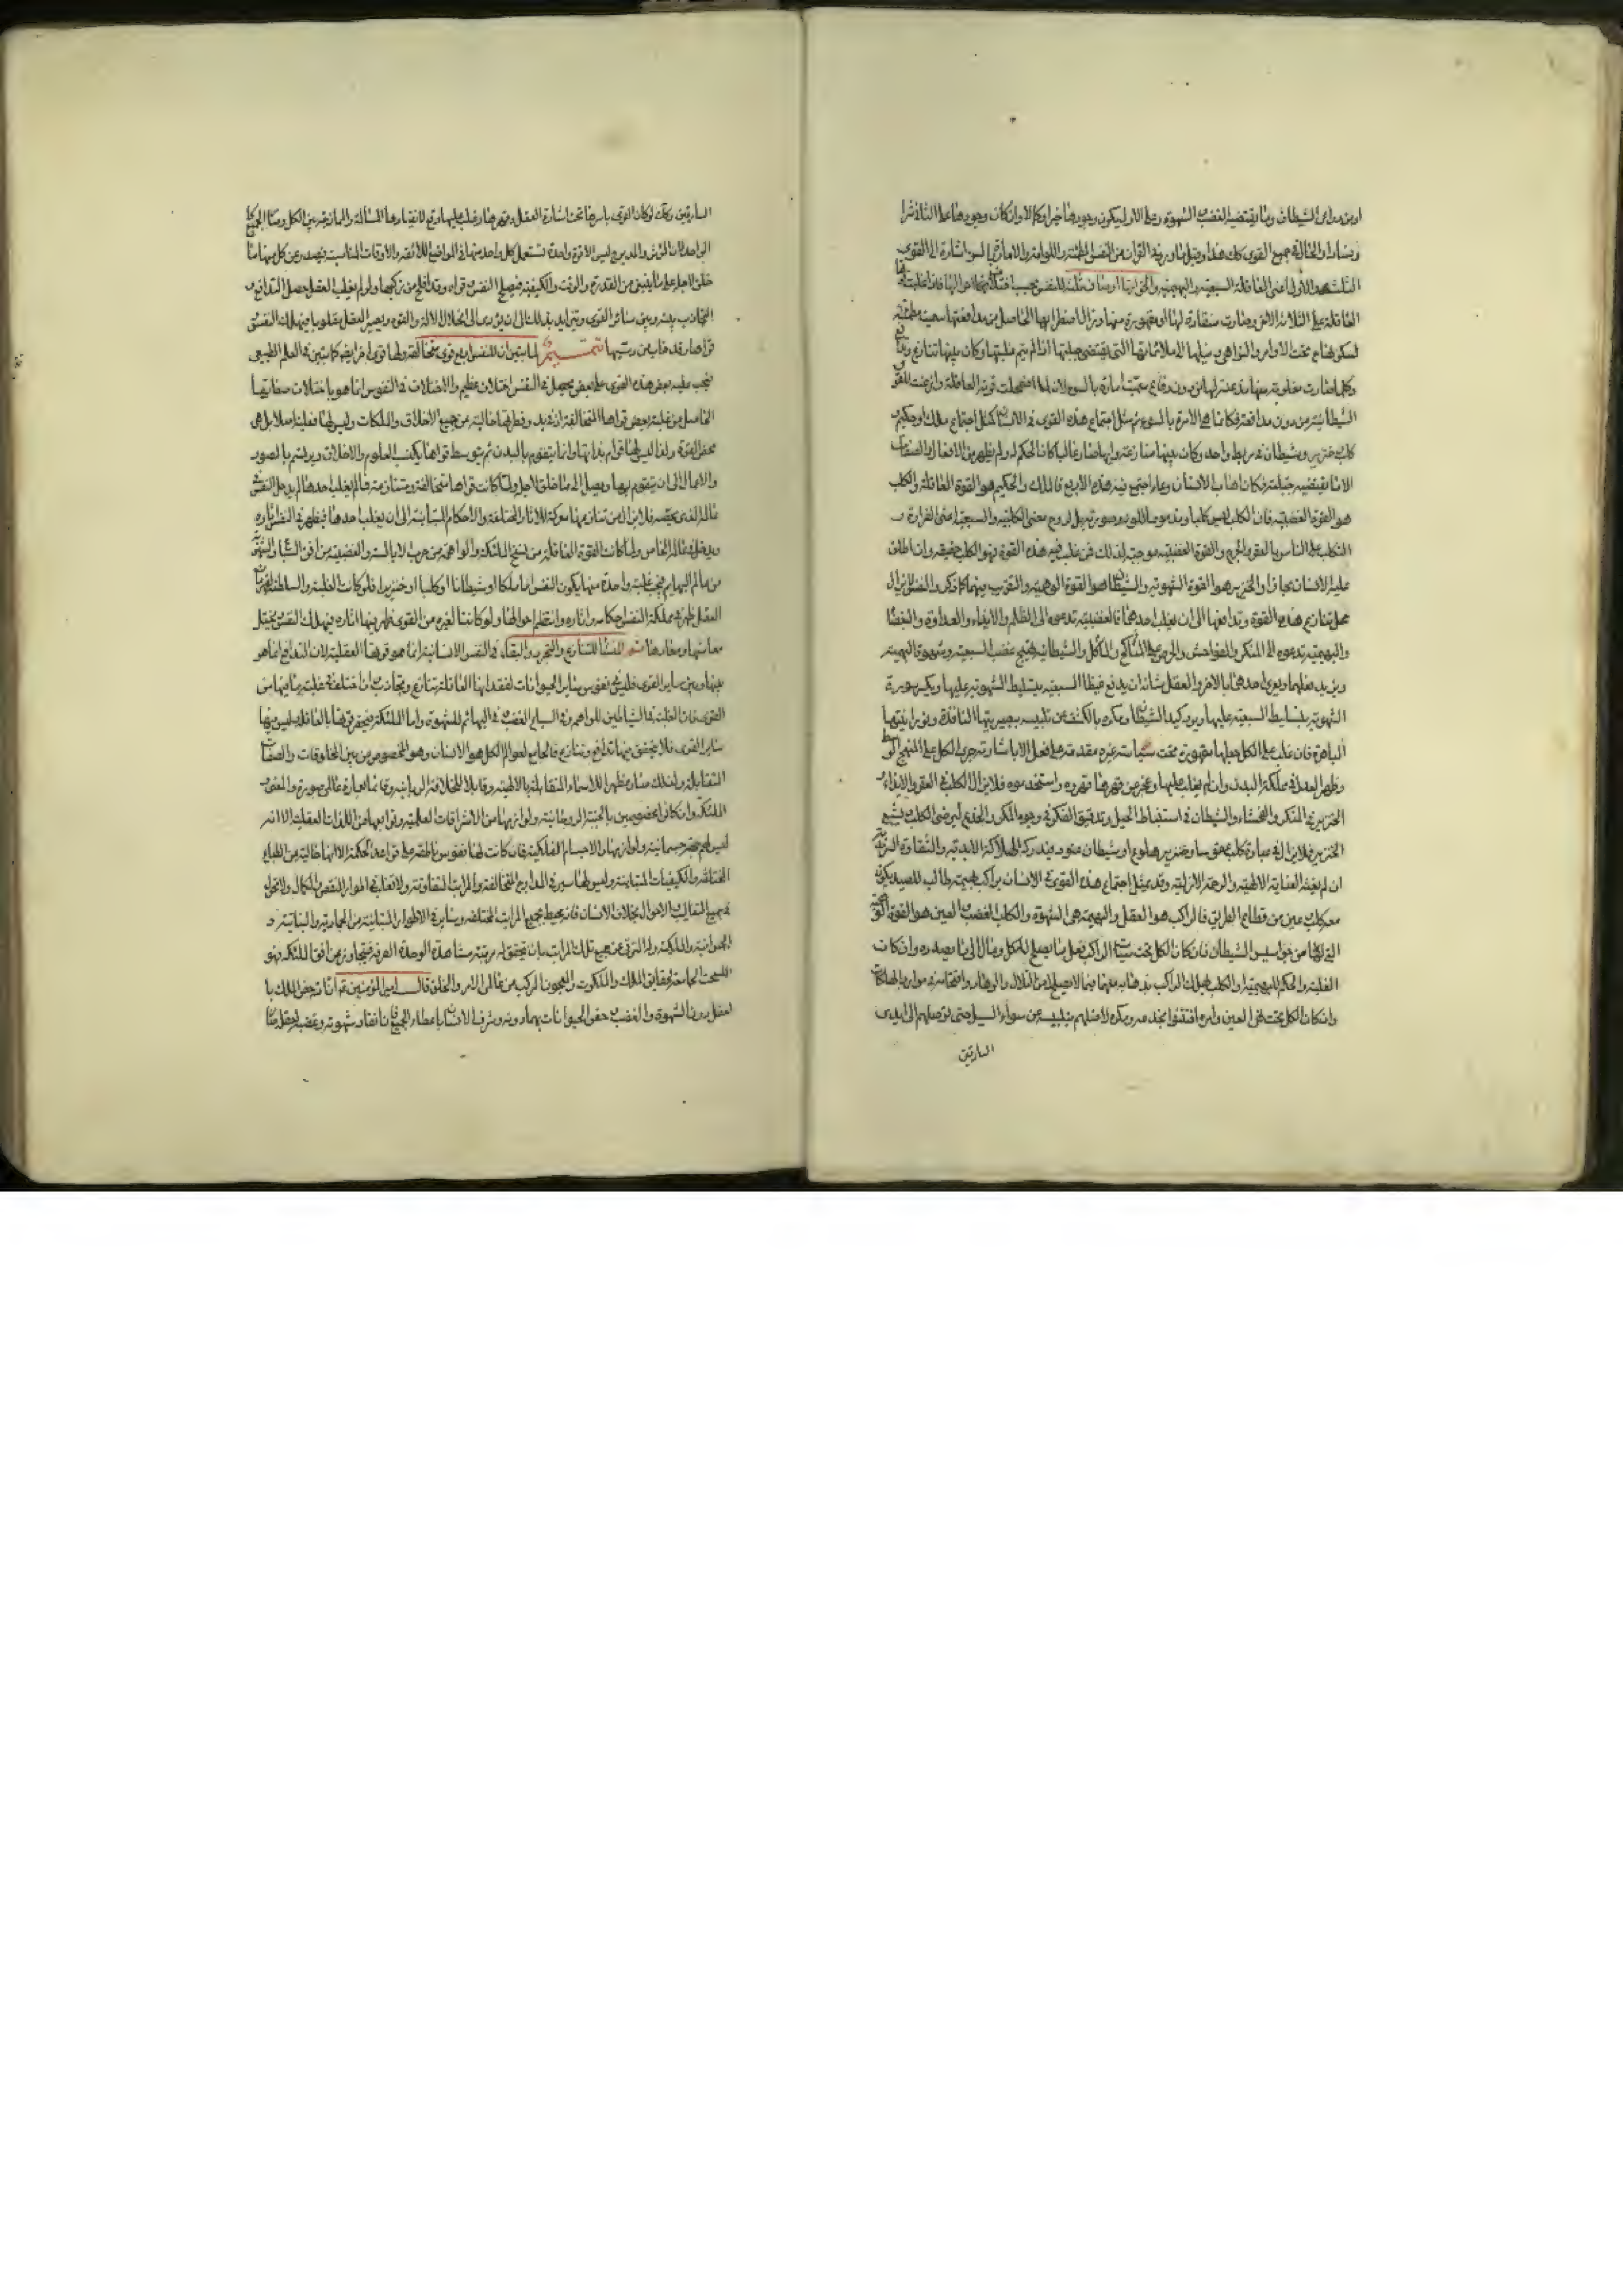 او من مداعى الشيطان وما يقتضيه الغضب والشهوة وعلى الاول يكون وجودها خيرا وكمالا وان كان وجودها على الثلاثة شرا
وفسادا والحالة فى جميع القوى كك هذا وقيل ما ورد فى القران من النفس المطمئنة واللوامة والامارة بالسوء اشارة الى القوى
الثلث الاول اعنى العاقلة السبعية والبهيمية والحق انها اوصاف ثلثة للنفس بحسب اختلاف احوالها فاذا غلبت
العاقلة على الثلاثة الاخر وصارت منقادة لها ومقهورة منها وزال اضطرابها الحاصل من مدافعتها سميت مطمئنة
لسكونها ح تحت الاوامر والنواهى وميلها الى ملائماتها التى يقتضى جبلتها اذا لم يتم غلبتها وكان بينها تنازع
وكلما صارت مغلوبة منها من دون دفاع سميت امارة بالسوء لانه لما اضمحلت قوته العاقلة واذعنت للقوى
الشيطانية من دون مدافعة فكانما هى الامرة بالسوء ثم مثل اجتماع هذه القوى فى الانسان كمثل اجتماع ملك او حكيم
كلب وخنزير وشيطان فى مربط واحد وكان بينها منازعة وايها صار غالبا كان الحكم له ولم يظهر من الافعال والصفات
الا ما يقتضيه جبلته فكان اهاب الانسان وعاء اجتمع فيه هذه الاربع فالملك والحكيم هو القوة العاقلة والكلب
هو القوة الغضبية فان الكلب ليس كلبا ومذموما للونه وصورته بل لروح معنى الكلبية والسبعية اعنى الضراوة و
التكلب على الناس بالعقر والجرح والقوة الغضبية موجبة لذلك فمن غلب فيه هذه القوة فهو الكلب حقيقة وان اطلق
عليه الانسان مجازا والخنزير هو القوة الشهوية والشيطان هو القوة الوهمية والتقريب فيهما كما ذكر والنفس لا يزال
محل تنازع هذه القوة وتدافعها الى ان يغلب احدها فالغضبية تدعوه الى الظلم والايذاء والعداوة والبغضاء
والبهيمية تدعوه الى المنكر والفواحش والحرص على المناكح والماكل والشيطانية يهيج غضب السبعية وشهوة البهيمية
ويزيد فعلهما ويغرى احدهما بالاخر والعقل شانه ان يدفع غيظ السبعية بتسليط الشهوية عليها ويكسر سورة
الشهوية بتسليط السبعية عليها ويرد كيد الشيطان ومكره بالكشف عن تلبيسه ببصيرته النافذة ونورانيته
الباهرة فان غلب على الكل جعلها مقهورة تحت سياسته غير مقدمة على فعل الا باشارته جرى الكل على المنهج الوسط
وظهر العدل فى مملكة البدن وان لم يغلب عليها وعجز عن قهرها قهروه واستخدموه فلا يزال الكلب فى العقر والايذاء
الخنزير فى المنكر والفحشاء والشيطان فى استنباط الحيل وتدقيق الفكر فى وجوه المكر والخدع ليرضى الكلب ويشبع
الخنزير فلا يزال فى عبادة كلب عقور او خنزير هلوع او شيطان عنود فيدركه الهلاكة الابدية والشقاوة السرمدية
ان لم يغثه العناية الالهية والرحمة الازلية وقد يمثل اجتماع هذه القوى فى الانسان براكب بهيمة طالب للصيد يكون
معه كلب وعين من قطاع الطريق فالراكب هو العقل والبهيمة هى الشهوة والكلب الغضب والعين هو القوة الوهمية
التى لها من جواسيس الشيطان فان كان الكل تحت سياسة الراكب فعل ما يصلح للكل ونال الى ما بصدده وان كانت
الغلبة والحكم للبهيمة او الكلب هلك الراكب بذهابه معهما فيما لا يصلح له من التلال والوهاد واقتحامه فى موارد الهلكات
وان كان الكل تحت نهى العين وامره افتتنوا بخدعه ومكره لاضلهم بتلبيسه عن سواء السبيل حتى يوصلهم الى ايدى
السارقين
السارقين وكك لو كان القوى باسرها تحت اشارة العقل وقهرها وغلب عليها وقع لانقيادها المسالمة والممازجة بين الكل وصار الجميع كا
لواحد لان المؤثر والمدبر ح ليس الا قوة واحدة تستعمل كل واحد منها فى المواضع اللائقة والاوقات المناسبة فيصدر عن كل منها ما
خلق لاجله على ما ينبغى من القدر والوقت والكيفية فيصلح النفس وقواه وقد افلح من زكيها ولو لم يغلب العقل حصل التدافع و
التجاذب بينه وبين سائر القوى ويتزايد بذلك الى ان يؤدى الى انحلال الالة والقوة ويصير العقل مغلوبا فيهلك النفس
قواها وقد خاب من دسيها تتميم لما تبين ان للنفس اربع قوى متخالفة ولها قوى اخر ايضا كما تبين فى العلم الطبيعى
فبحسب غلبة بعض هذه القوى على بعض يحصل فى النفس اختلاف عظيم والاختلاف فى النفوس انما هو باختلاف صفاتها
الحاصل من غلبة بعض قواها المتخالفة اذ فى بدو فطرتها خالية عن جميع الاخلاق والملكات وليس لها فعلية اصلا بل هى
محض القوة ولذا ليس لها قوام بذاتها وانما يتقوم بالبدن ثم بتوسط قواها يكتسب العلوم والاخلاق ويرتسم بالصور
والاعمال الى ان يتقوم بها ويصل الى ما خلق لاجله ولما كانت قواها متخالفة ومتنازعة فما لم يغلب احدها لم يدخل النفس فى
عالمها الذى يخصه فلا يزال من تنازعها معركة للاثار المختلفة والاحكام المتباينة الى ان يغلب احدها فيظهر فى النفس اثاره
ويدخل فى عالمه الخاص ولما كانت القوة العاقلة من سنخ الملئكة والواهمة من حزب الابالسة والغضبية من افق السباع والشهوية
من عالم البهائم فبحسب غلبة واحدة منها يكون النفس اما ملكا او شيطانا او كلبا او خنزيرا فلو كانت الغلبة والسلطنة لقهرمان
العقل ظهر فى مملكة النفس احكامه واثاره وانتظم احوالها ولو كانت لغيره من القوى ظهر فيها اثاره فيهلك النفس ويختل
معاشها ومعادها ثم المنشا للتنازع والتجرد والبقاء فى النفس الانسانية انما هو قوتها العقلية لان التدافع انما هو
بينها وبين ساير القوى فليس فى نفوس ساير الحيوانات لفقدانها العاقلة تنازع وتجاذب وان اختلفت غلبة ما فيها من
القوى فان الغلبة فى الشياطين للواهمة وفى السباع للغضب وفى البهائم للشهوة واما الملئكة فينحصر قوتها بالعاقلة وليس فيها
ساير القوى فلا يتحقق فيها تدافع وتنازع فالجامع لعوالم الكل هو الانسان وهو المخصوص من بين المخلوقات والصفات
المتقابلة ولذلك صار مظهرا للاسماء المتقابلة بالالهية وقابلا للخلافة الربانية وقائما لعمارة عالمى الصورة والمعنى و
الملئكة وان كانوا مخصوصين بالجنبة الروحانية ولوازمها من الاشراقات العلمية وتوابعها من اللذات العقلية الا انه
ليس لهم جهة جسمانية ولوازمها والاجسام الفلكية وان كانت لها نفوس ناطقة على قواعد الحكمة الا انها خالية من الطبايع
المختلفة والكيفيات المتباينة وليس لها سير فى المدارج المتخالفة والمراتب المتفاوتة ولا تقلب فى اطوار النقص والكمال ولا تحول
فى جميع التقاليب والاحوال بخلاف الانسان فانه محيط بجميع المراتب المختلفة وساير فى الاطوار المتباينة من الجمادية والنباتية و
الحيوانية والملكية وله الترقى عن جميع تلك المراتب بان يتحقق له مرتبة مشاهدة الوحدة الصرفة فيتجاوز عن افق الملئكة فهو
النسخة الجامعة لحقايق الملك والملكوت والمعجون المركب من عالمى الامر والخلق قال امير المؤمنين ع ان الله خص الملك با
لعقل دون الشهوة والغضب وخص الحيوانات بهما دونه وشرف الانسان باعطاء الجميع فان انقاد شهوته وغضبه لعقله صار